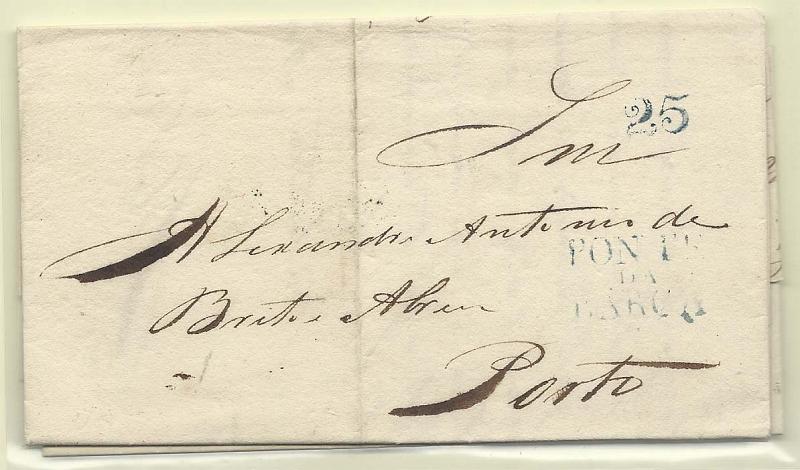 25
Snr
Alexandre Antonio de
PONTE
DA
BARCA
Brito e Abreu
Porto